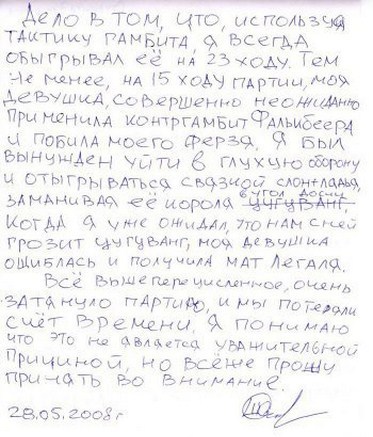 Дело в том, что, используя
тактику гамбита, я всегда
обыгрывал её на 23 ходу. Тем
не менее, на 15 ходу партии, моя
девушка, совершенно неожиданно
применила контргамбит Фалькбеера
и побила моего ферзя. Я был
вынужден уйти в глухую оборону
и отыгрываться связкой слон+ладья,
заманивая её короля в угол доски
цугуванг.
Когда я уже ожидал, что нам с ней
грозит цугуванг, моя девушка
ошиблась и получила мат Легаля.
Всё вышеперечисленное, очень
затянуло партию, и мы потеряли
счёт времени. Я понимаю
что это не является уважительной
причиной, но всёже прошу
принять во внимание.
28.05.2008г